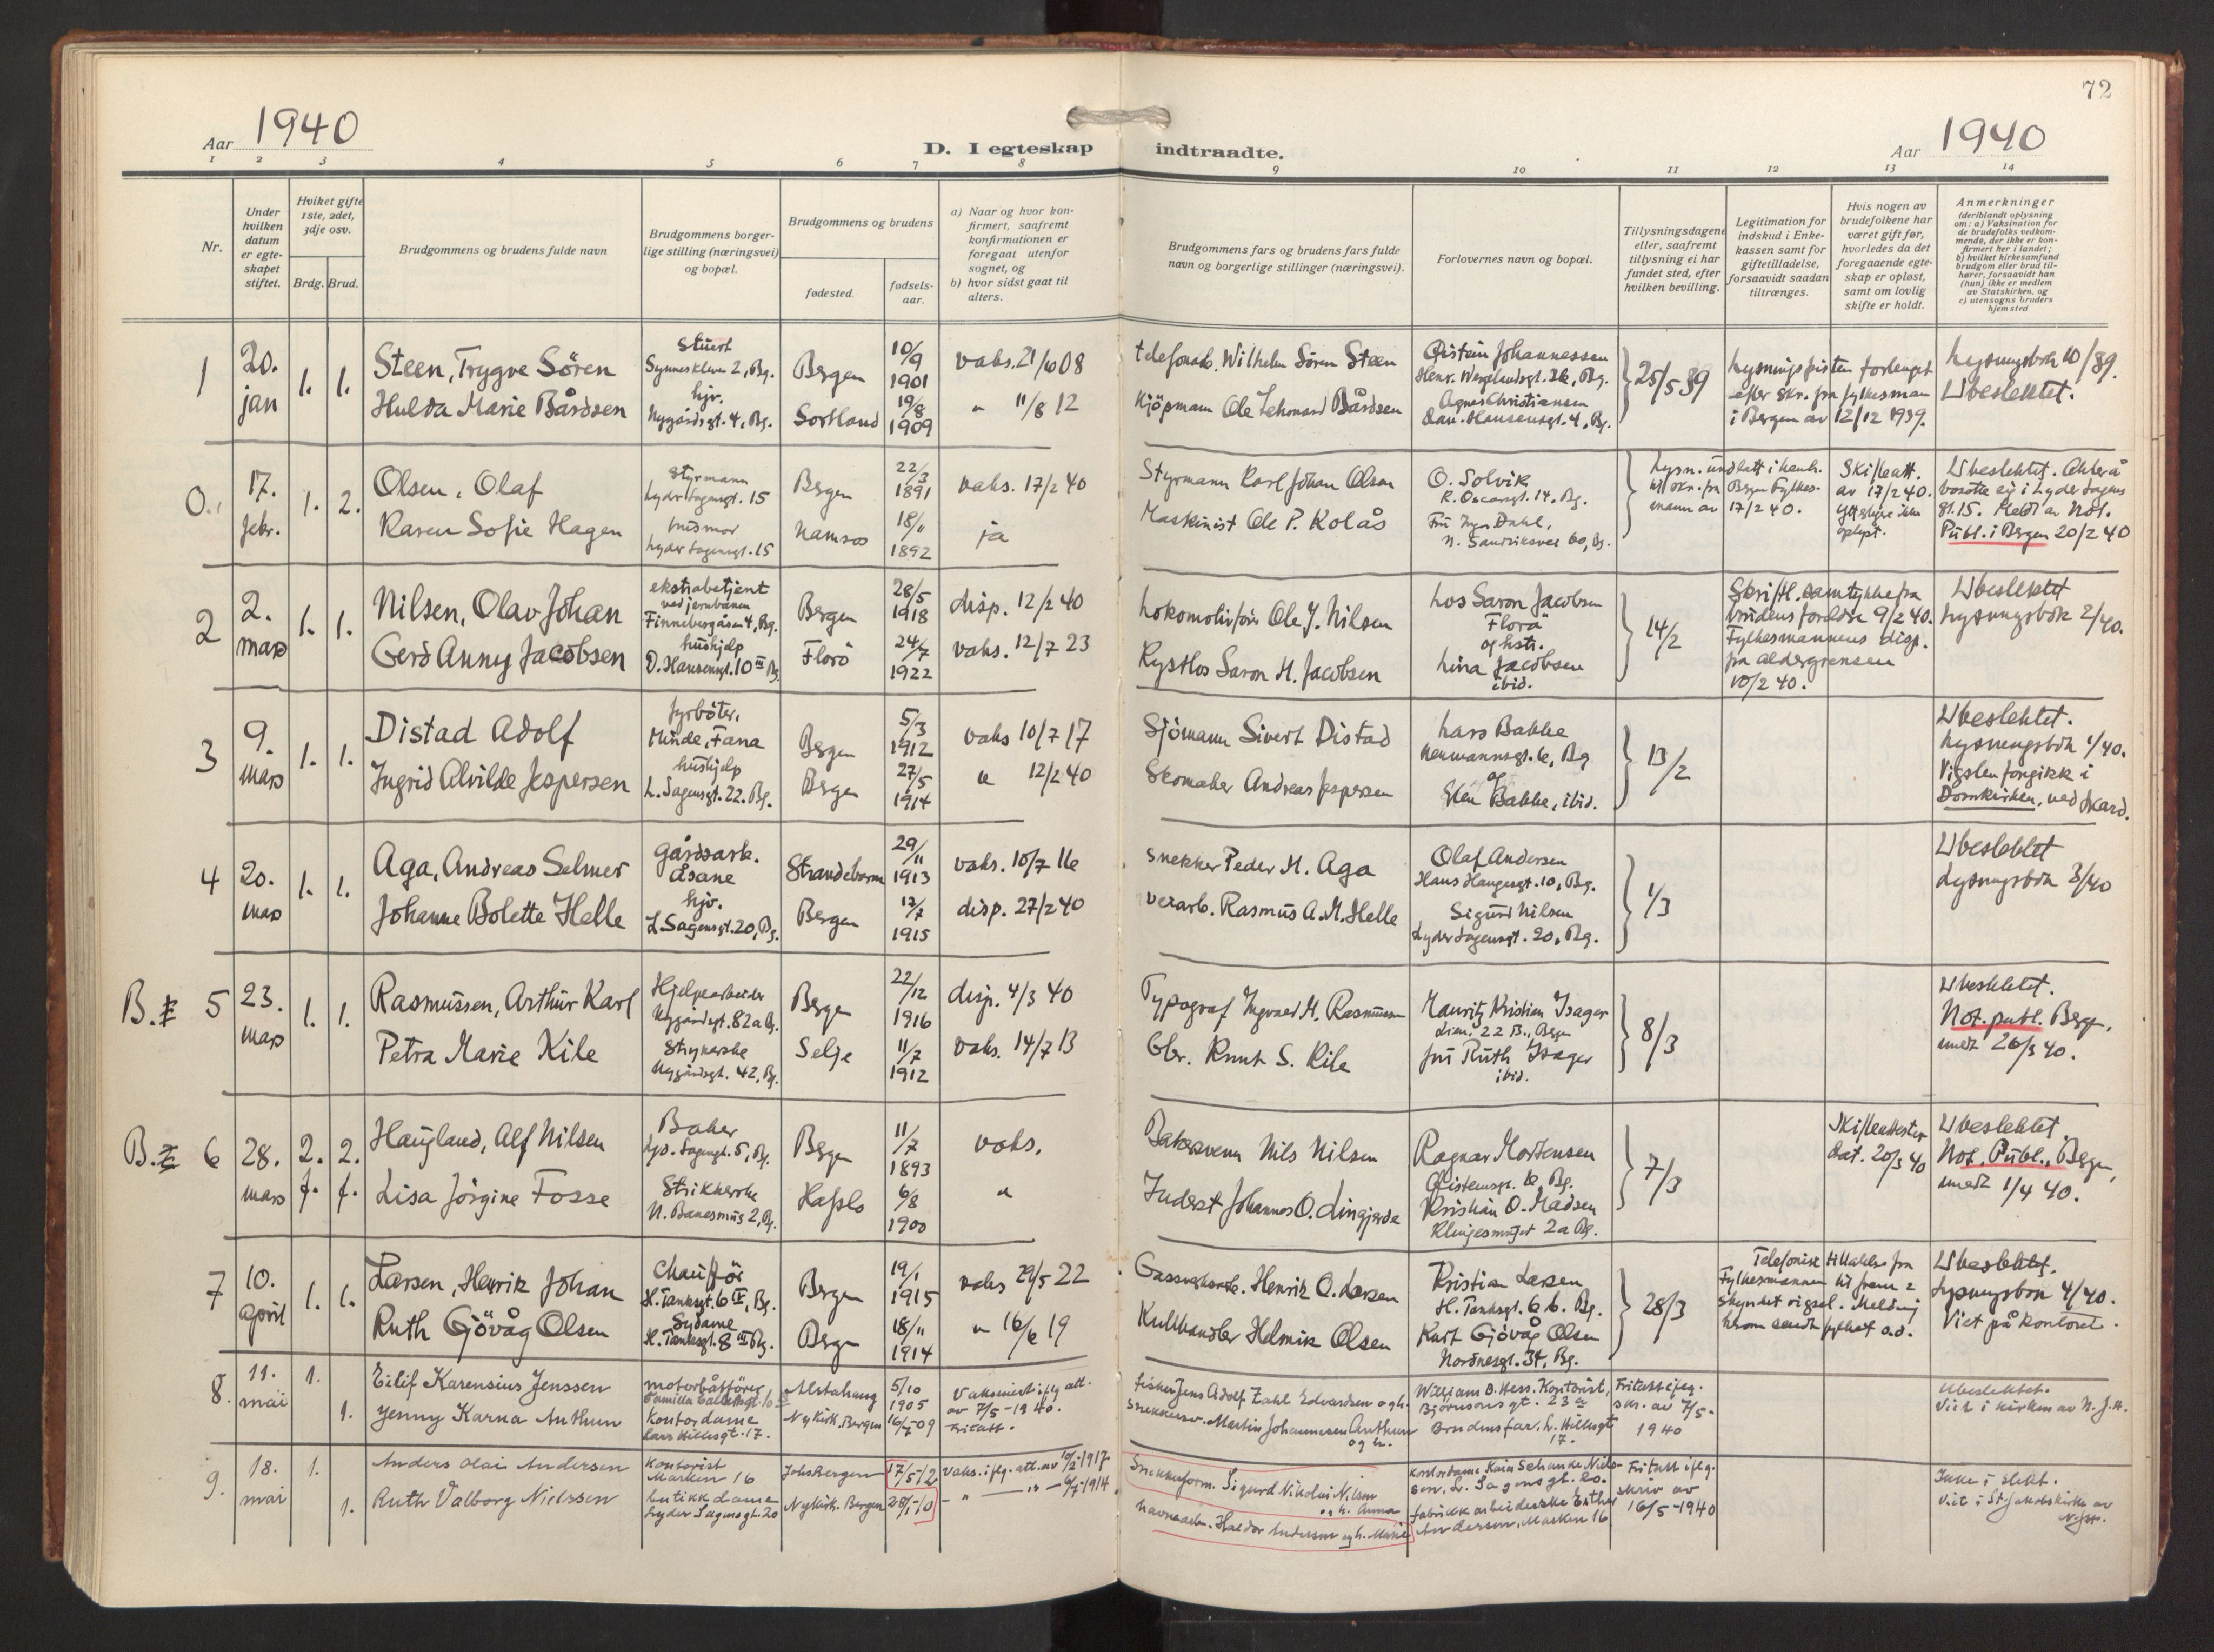 72
Aar 1940
D. I egteskap indtraadte.
Aar 1940
1 2 3 4 5 6 7 8 9 10 11 12 13 14
Nr.
Under hvilken datum er egteskapet stiftet.
Hvilket gifte 1ste, 2det, 3dje osv.
Brdg. Brud.
Brudgommens og brudens fulde navn
Brudgommens borgerlige stilling (næringsvei) og bopæl.
Brudgommens og brudens
fødested.
fødselsaar.
a) Naar og hvor konfirmert, saafremt konfirmationen er foregaat utenfor sognet, og
b) hvor sidst gaat til alters.
Brudgommens fars og brudens fars fulde navn og borgerlige stillinger (næringsvei).
Forlovernes navn og bopæl.
Tillysningsdagene eller, saafremt tillysning ei har fundet sted, efter hvilken bevilling.
Legitimation for indskud i Enkekassen samt for giftetilladelse, forsaavidt saadan tiltrænges.
Hvis nogen av brudefolkene har været gift før, hvorledes da det foregaaende egteskap er opløst, samt om lovlig skifte er holdt.
Anmerkninger
(deriblandt oplysning om: a) Vaksination for de brudefolks vedkommende, der ikke er konfirmert her i landet; b) hvilket kirkesamfund brudgom eller brud tilhører, forsaavidt han (hun) ikke er medlem av Statskirken, og c) utensogns bruders hjemsted
1 20. jan 1. 1.
Steen, Trygve Sören
Stuert
Bergen 10/9 1901
vaks. 21/10 08
telefonarb. Wilhelm Sören Steen
Øistein Johannessen
Henr. Wergelandsgt. 26, Bg.
25/5 39
lysningsfristen forlenget
efter skr. fra fylkesman
i Bergen av 12/12 1939.
lysningsbok 10/39.
Ubeslektet.
Hulda Marie Bårdsen
hjv.
Nygårdsgt. 4, Bg.
Sortland 19/8 1909
" 11/8 12
Kjöpmann Ole Lehmard Bårdsen
Agnes Christiansen
Dan. Hansensgt. 4, Bg.
0. 17. febr. 1. 2.
Olsen, Olaf
Styrmann
Lyder Sagensgt. 15
Bergen 22/3 1891
vaks. 17/2 40
Styrmann Karl Johan Olsen
O. Solvik
R. Oscarsgt. 14, Bg.
Skilleatt.
av 17/2 40.
Karen Sofie Hagen
husmor
Lyder Sagensgt. 15
Namsos 18/11 1892
ja
Maskinist Ole P. Kolås
Bergen Fylkesmann av 17/2 40.
Ubeslektet.
Publ. i Bergen 20/2 40
2 2. mars 1. 1.
Nilsen, Olav Johan
ekstrabetjent
ved jernbanen
Finnebergåsen 4, Bg.
Bergen 28/5 1918
disp. 12/2 40
Lokomotivförer Ole J. Nilsen
Los Saron Jacobsen
Florö
og hstr.
14/2
Skriftl. samtykke fra
brudens foreldre 9/2 40.
Fylkesmannens disp.
fra aldergrensen
10/2 40.
Ubeslektet
Lysningsbok 2/40.
Gerd Anny Jacobsen
hushjelp
D. Hansensgt. 10 III Bg
Florö 24/7 1922
vaks. 12/7 23
Kystlos Saron H. Jacobsen
Lina Jacobsen
ibid.
3 9. mars 1. 1.
Distad Adolf
fyrböter.
Minde, Fana
Bergen 5/3 1912
vaks 10/7 17
Sjömann Sivert Distad
Lars Bakke
Neumannsgt. 6, Bg
og
13/2
Ubeslektet.
Lysningsbok 1/40.
Vigslen foregikk i
Domkirken, ved Skard.
Ingrid Alvilde Jespersen
hushjelp
L. Sagensgt. 22. Bg.
Bergen 27/5 1914
" 12/2 40
Skomaker Andreas Jespersen
Elen Bakke, ibid.
4 20. mars 1. 1.
Aga, Andreas Selmer
gårdsarb.
Åsane
Strandebarm 29/11 1913
vaks. 10/7 16
Snekker Peder H. Aga
Olaf Andersen
Hans Haugesgt. 10, Bg.
1/3
Ubeslektet
Lysningsbok 3/40
Johanne Bolette Helle
hjv.
L. Sagensgt. 20, Bg.
Bergen 12/7 1915
disp. 27/2 40
verarb. Rasmus A. M. Helle
Sigurd Nilsen
Lyder Sagensgt. 20, Bg.
5 23. mars 1. 1.
Rasmussen, Arthur Karl
Hjelpearbeider
Nygårdsgt. 82a Bg.
Bergen 22/12 1916
disp. 4/3 40
Typograf Ingvald M. Rasmussen
Mauritz Kristian Isager
8/3
Ubeslektet.
Not. publ. Berg.
medt 26/3 40.
Petra Marie Kile
Strykerske
Nygårdsgt. 42, Bg.
Selje 11/7 1912
vaks. 14/7 13
Gbr. Knut S. Kile
fru Ruth Isager
ibid.
6 28. mars 2. f. 2. f.
Haugland, Alf Nilsen
Baker
Lyd. Sagensgt. 5, Bg.
Bergen 11/7 1893
vaks.
Bakersvenn Nils Nilsen
Ragnar Mortensen
7/3
Skifteattester
dat. 20/3 40
Ubeslektet
Not. Publ., Bergen,
medt 1/4 40.
Lisa Jörgine Fosse
Strikkerske
Hafslo 6/8 1900
"
Inderst Johannes O. Lingjerde
Kristian O. Madsen
2a Bg.
7 10. april 1. 1.
Larsen, Henrik Johan
Chaufför
H. Tanksgt. 6 IV, Bg.
Bergen 19/1 1915
vaks 29/5 22
Gassverksarb. Henrik O. Larsen
Kristian Larsen
H. Tanksgt. 6 b. Bg.
28/3
Telefonisk tillatelse fra
Fylkesmannen til
skyndet vigsel. Melding
herom sendt fylket s.d.
Ubeslektet.
Lysningsbok 4/40.
Viet på kontoret.
Ruth Gjövåg Olsen
Sydame
H. Tanksgt. 8 III Bg.
Bergen 18/11 1914
" 16/6 19
Kullhandler Helmik Olsen
Kurt Gjövåg Olsen
Nordnesgt. 34, Bg.
8. 11. mai 1.
Eilif Karensius Jenssen
motorbåtförer
Alstahaug 5/10 1905
Vaksinert iflg. att.
av 7/5-1940.
fisker Jens Adolf Zahl Edvardsen og h.
William B. Hess. Kontorist,
Björnsonsgt. 23
Fritatt iflg.
skr. av 7/5-
1940
Ubeslektet.
Viet i kirken av N. J. H.
1.
Jenny Karna Anthun
Kontordame
Lars Hillesgt. 17.
Nykirk. Bergen 16/7-09
Fritatt.
Snekkersv. Martin Johannesen Anthun
og h.
Brudens far. L. Hillesgt
17.
9. 18. mai 1.
Anders Olai Andersen
Kontorist
Marken 16
Joh. Bergen 17/5-12
Vaks. iflg. att. av 10/2-1917
Snekkerform. Sigurd Nikolai Nilsen
og h. Anna
Kontordame Karin Schanke Nielssen, L. Sagensgt. 20.
Fritatt iflg.
skriv av
16/5-1940
Ikke i slekt.
Viet i St. Jakobs kirke av
1.
Ruth Valborg Nielssen
butikkdame
Lyder Sagensgt. 20
Nykirk. Bergen 28/1-10
Havnearb. Haldor Andersen og h. Marie
fabrikkarbeiderske Esther
Andersen, Marken 16